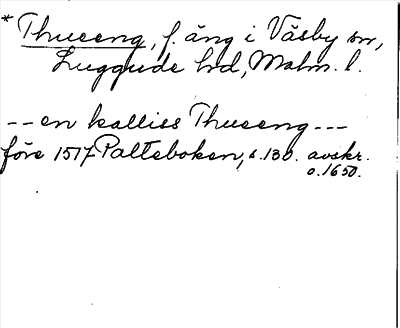 * Thuseng, f. äng i Väsby sn,
Luggude hd, Malm. l.
-- en kalliss Thuseng ---
före 1517 Palteboken, s. 130. avskr.
o. 1650.